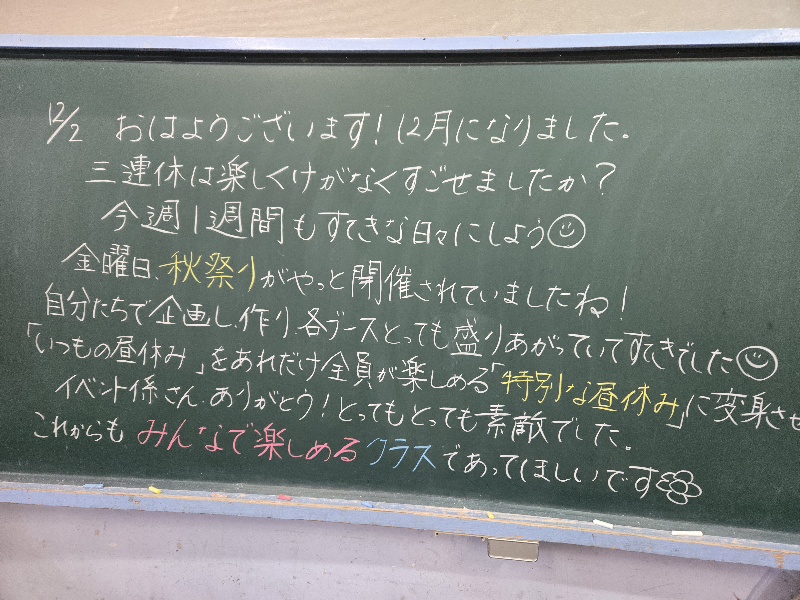 12/2 おはようございます!12月になりました。
三連休は楽しくけがなくすごせましたか?
今週1週間もすてきな日々にしよう
金曜日、秋祭りがやっと開催されていましたね!
自分たちで企画し、作り、各ブースとっても盛りあがっていてすてきでした
「いつもの昼休み」をあれだけ全員が楽しめる「特別な昼休み」に変身させ
イベント係さん、ありがとう!とってもとっても素敵でした。
これからも みんなで楽しめる クラス であってほしいです